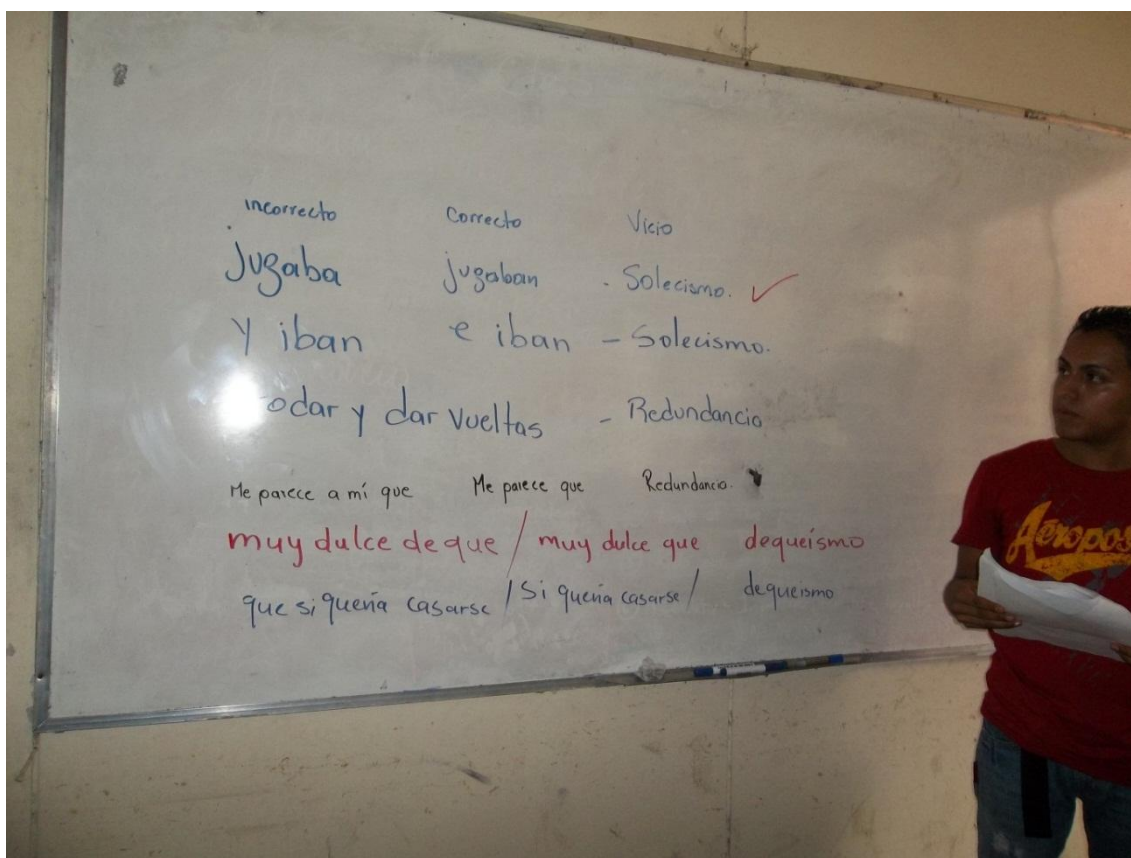 incorrecto Correcto Vicio
jugaba jugaban - Solecismo. ✓
y iban e iban - Solecismo.
y dar vueltas - Redundancia
Me parece a mí que Me parece que Redundancia.
muy dulce de que / muy dulce que dequeísmo
que si quería casarse / Si quería casarse / dequeismo
Aéropos